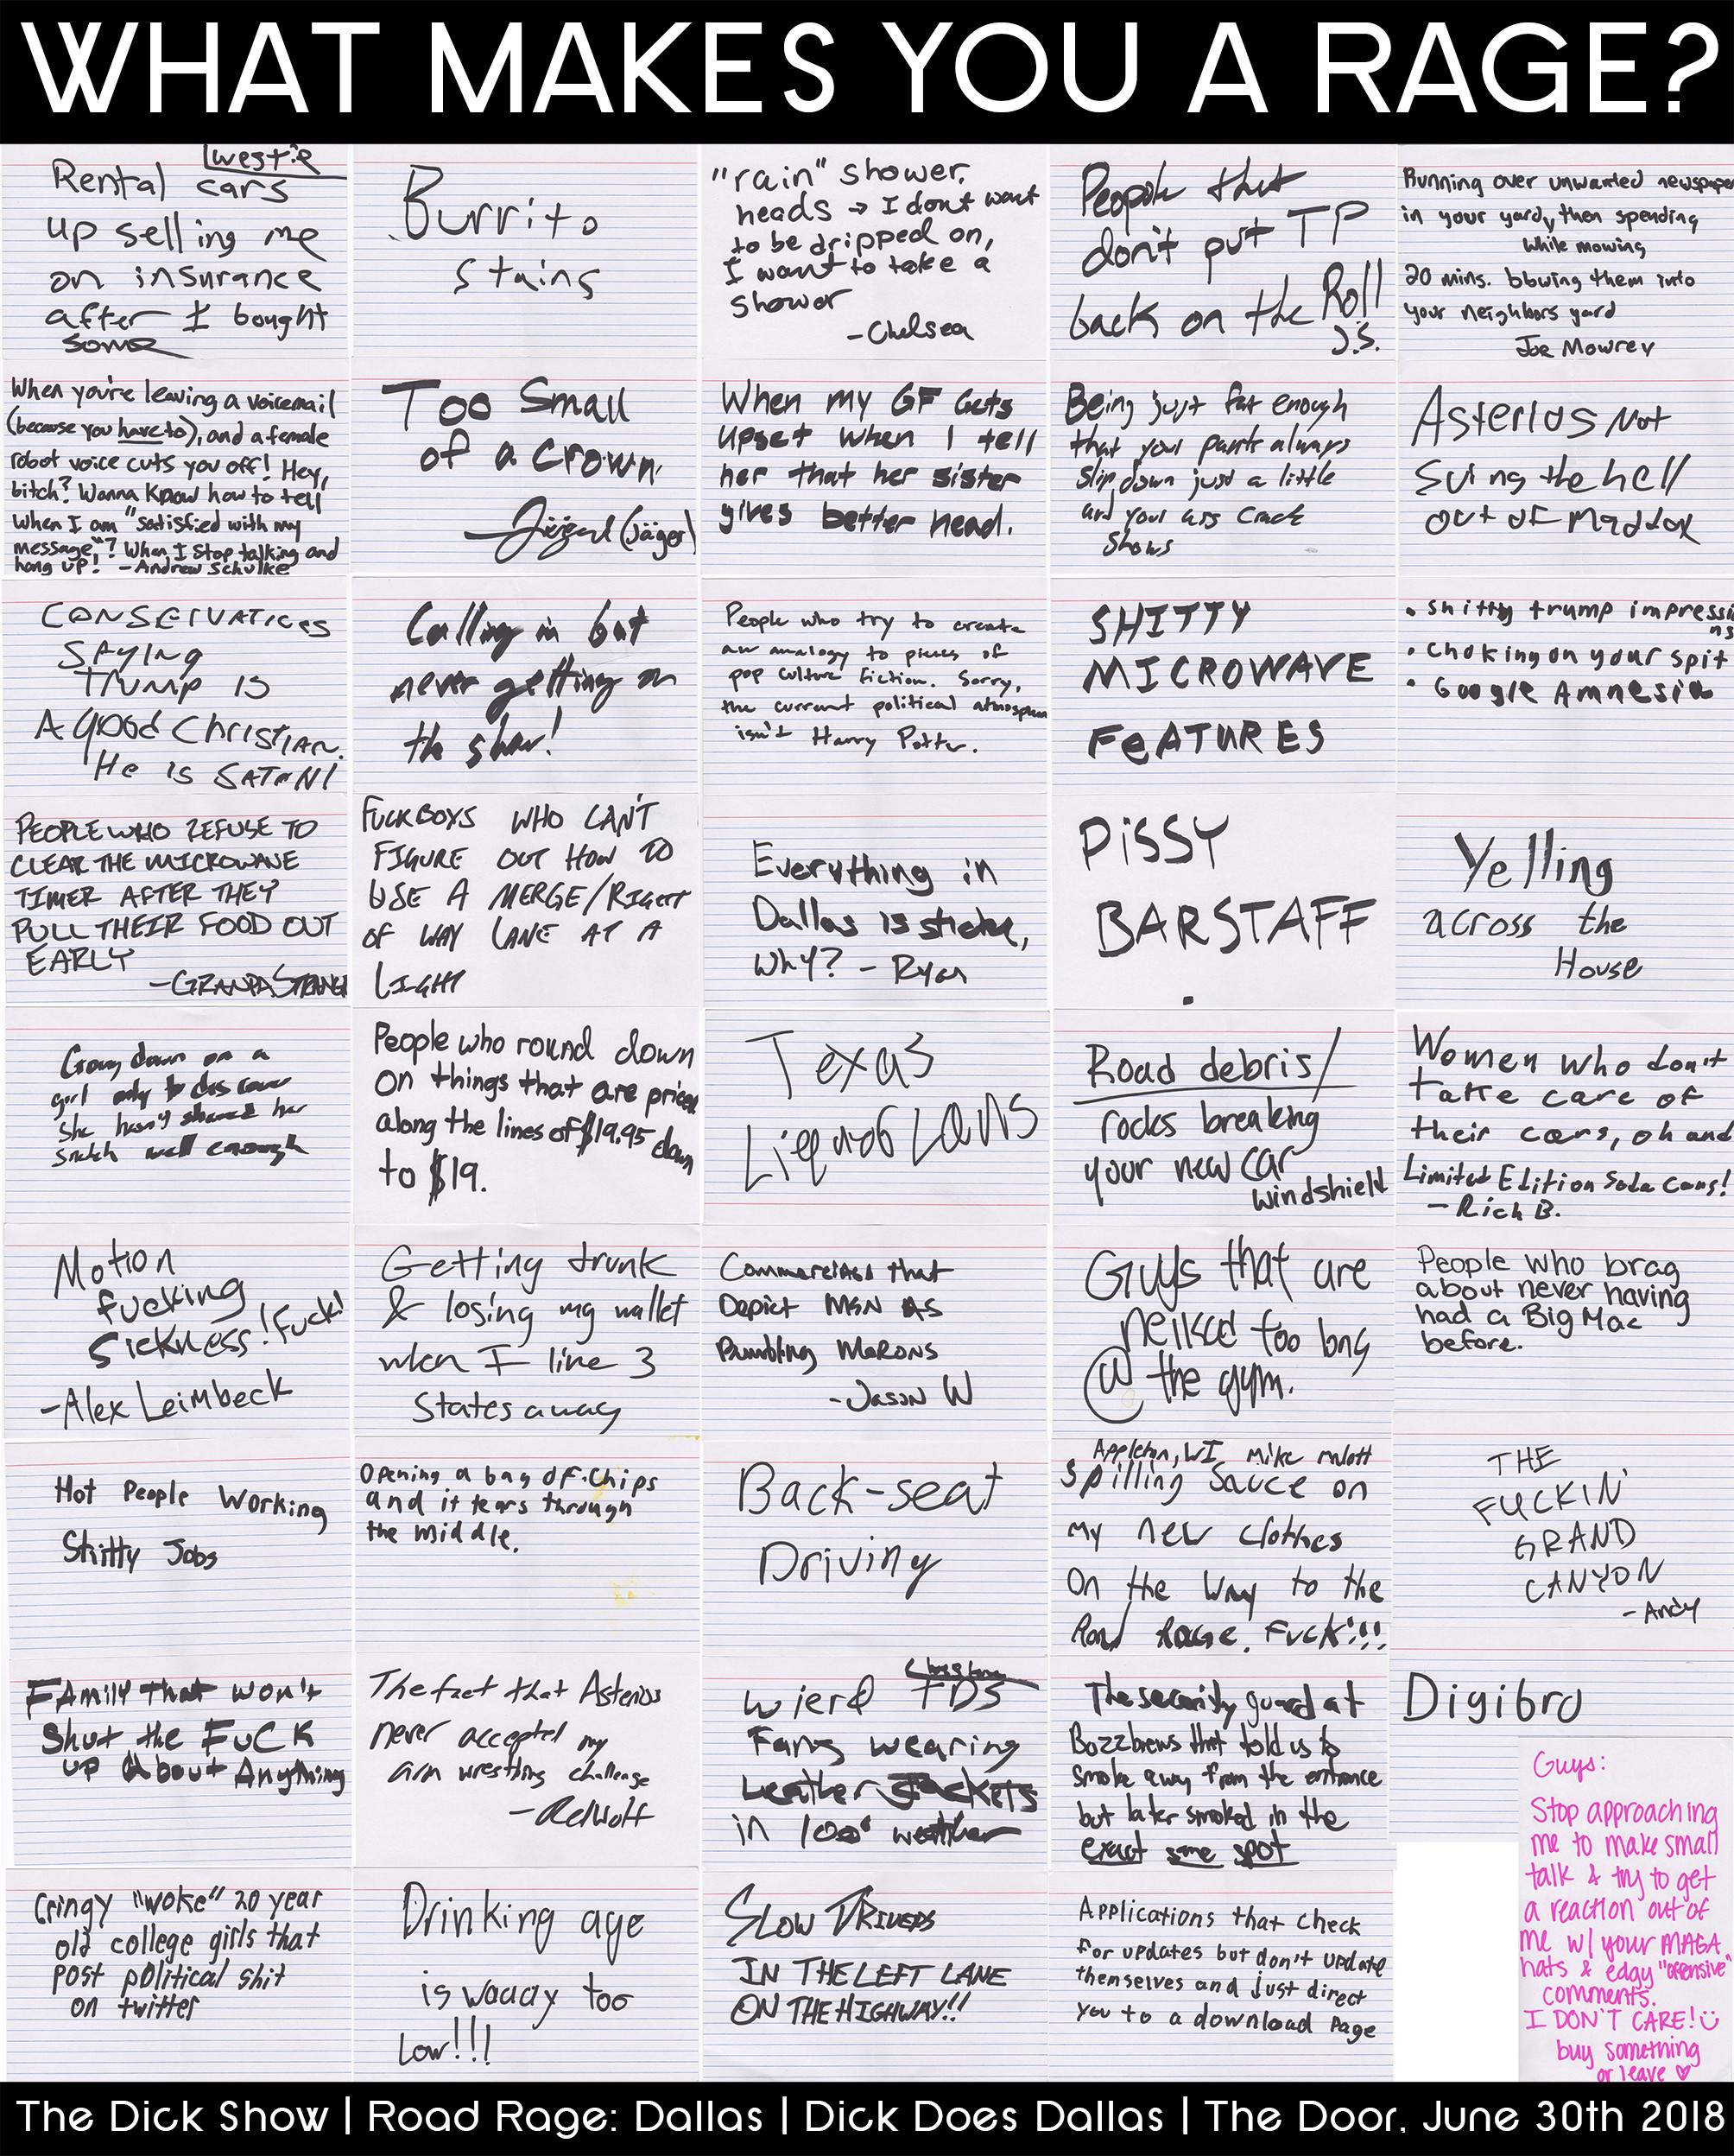 WHAT MAKES YOU A RAGE?
Lwestie
Rental cars
up selling me
on insurance
after I bought
some
Burrito
stains
"rain" shower
heads → I dont want
to be dripped on,
I want to take a
shower
-Chelsea
People that
don't put TP
back on the Roll
J.S.
Running over unwanted newspaper
in your yard, then spending
while mowing
20 mins. blowing them into
your neighbors yard
Joe Mowrey
When you're leaving a voicemail
(because you have to), and a female
robot voice cuts you off! Hey,
bitch? Wanna know how to tell
when I am "satisfied with my
message"? When I stop talking and
hang up! -Andrew Schulke
Too Small
of a crown
(Jäger)
When my GF Gets
upset when I tell
her that her sister
gives better head.
Being just fat enough
that your pants always
slip down just a little
and your ass crack
shows
Asterios Not
Suing the hell
out of Maddox
Conservatives
Saying
Trump is
A good Christian.
He is SATAN!
Calling in but
never getting on
the show!
People who try to create
an analogy to pieces of
pop culture fiction. Sorry,
the current political atmosphere
isn't Harry Potter.
SHITTY
MICROWAVE
FeATURES
• shitty trump impressi
ns
• choking on your spit
• Google Amnesia
PEOPLE WHO REFUSE TO
CLEAR THE MICROWAVE
TIMER AFTER THEY
PULL THEIR FOOD OUT
EARLY
-GRANPA STRANGE
FUCKBOYS WHO CAN'T
FIGURE OUT HOW TO
USE A MERGE/RIGHT
OF WAY LANE AT A
LIGHT
Everything in
Dallas is
Why? - Ryan
PiSSY
BARSTAFF
.
Yelling
across the
House
Going down on a
girl only to discover
she hasn't shaved her
snatch well enough
People who round down
on things that are priced
along the lines of $19.95 down
to $19.
Texas
Liquor Laws
Road debris/
rocks breaking
your new car
windshield
Women who don't
take care of
their cars, oh and
Limited Edition Soda Cans!
- Rich B.
Motion
fucking
Sickness! Fuck!
-Alex Leimbeck
Getting drunk
& losing my wallet
when I live 3
States away
Commercials that
Depict Men As
Bumbling Morons
-Jason W
Guys that are
neked too long
@ the gym.
People who brag
about never having
had a Big Mac
before.
Hot People Working
Shitty Jobs
Opening a bag of chips
and it tears through
the middle.
Back-seat
Driving
Appleton, WI, Mike
Spilling Sauce on
my new clothes
On the way to the
Road Rage. Fuck!!!
THE
FUCKIN'
GRAND
CANYON
-Andy
FAmily that won't
Shut the FuCK
up About Anything
The fact that Asterios
never accepted my
arm wrestling challenge
-RedWolf
Wierd TDS
Fans wearing
Leather Jackets
in 100° weather
The security guard at
Bozzbrews that told us to
smoke away from the entrance
but later smoked in the
exact same spot
Digibro
Guys:
Stop approaching
me to make small
talk & try to get
a reaction out of
me w/ your MAGA
hats & edgy "offensive"
comments.
I DON'T CARE! :)
buy something
or leave ♡
Cringy "woke" 20 year
old college girls that
post political shit
on twitter
Drinking age
is waaay too
Low!!!
SLOW DRIVERS
IN THE LEFT LANE
ON THE HIGHWAY!!
Applications that check
for updates but don't update
themselves and just direct
you to a download page
The Dick Show | Road Rage: Dallas | Dick Does Dallas | The Door, June 30th 2018